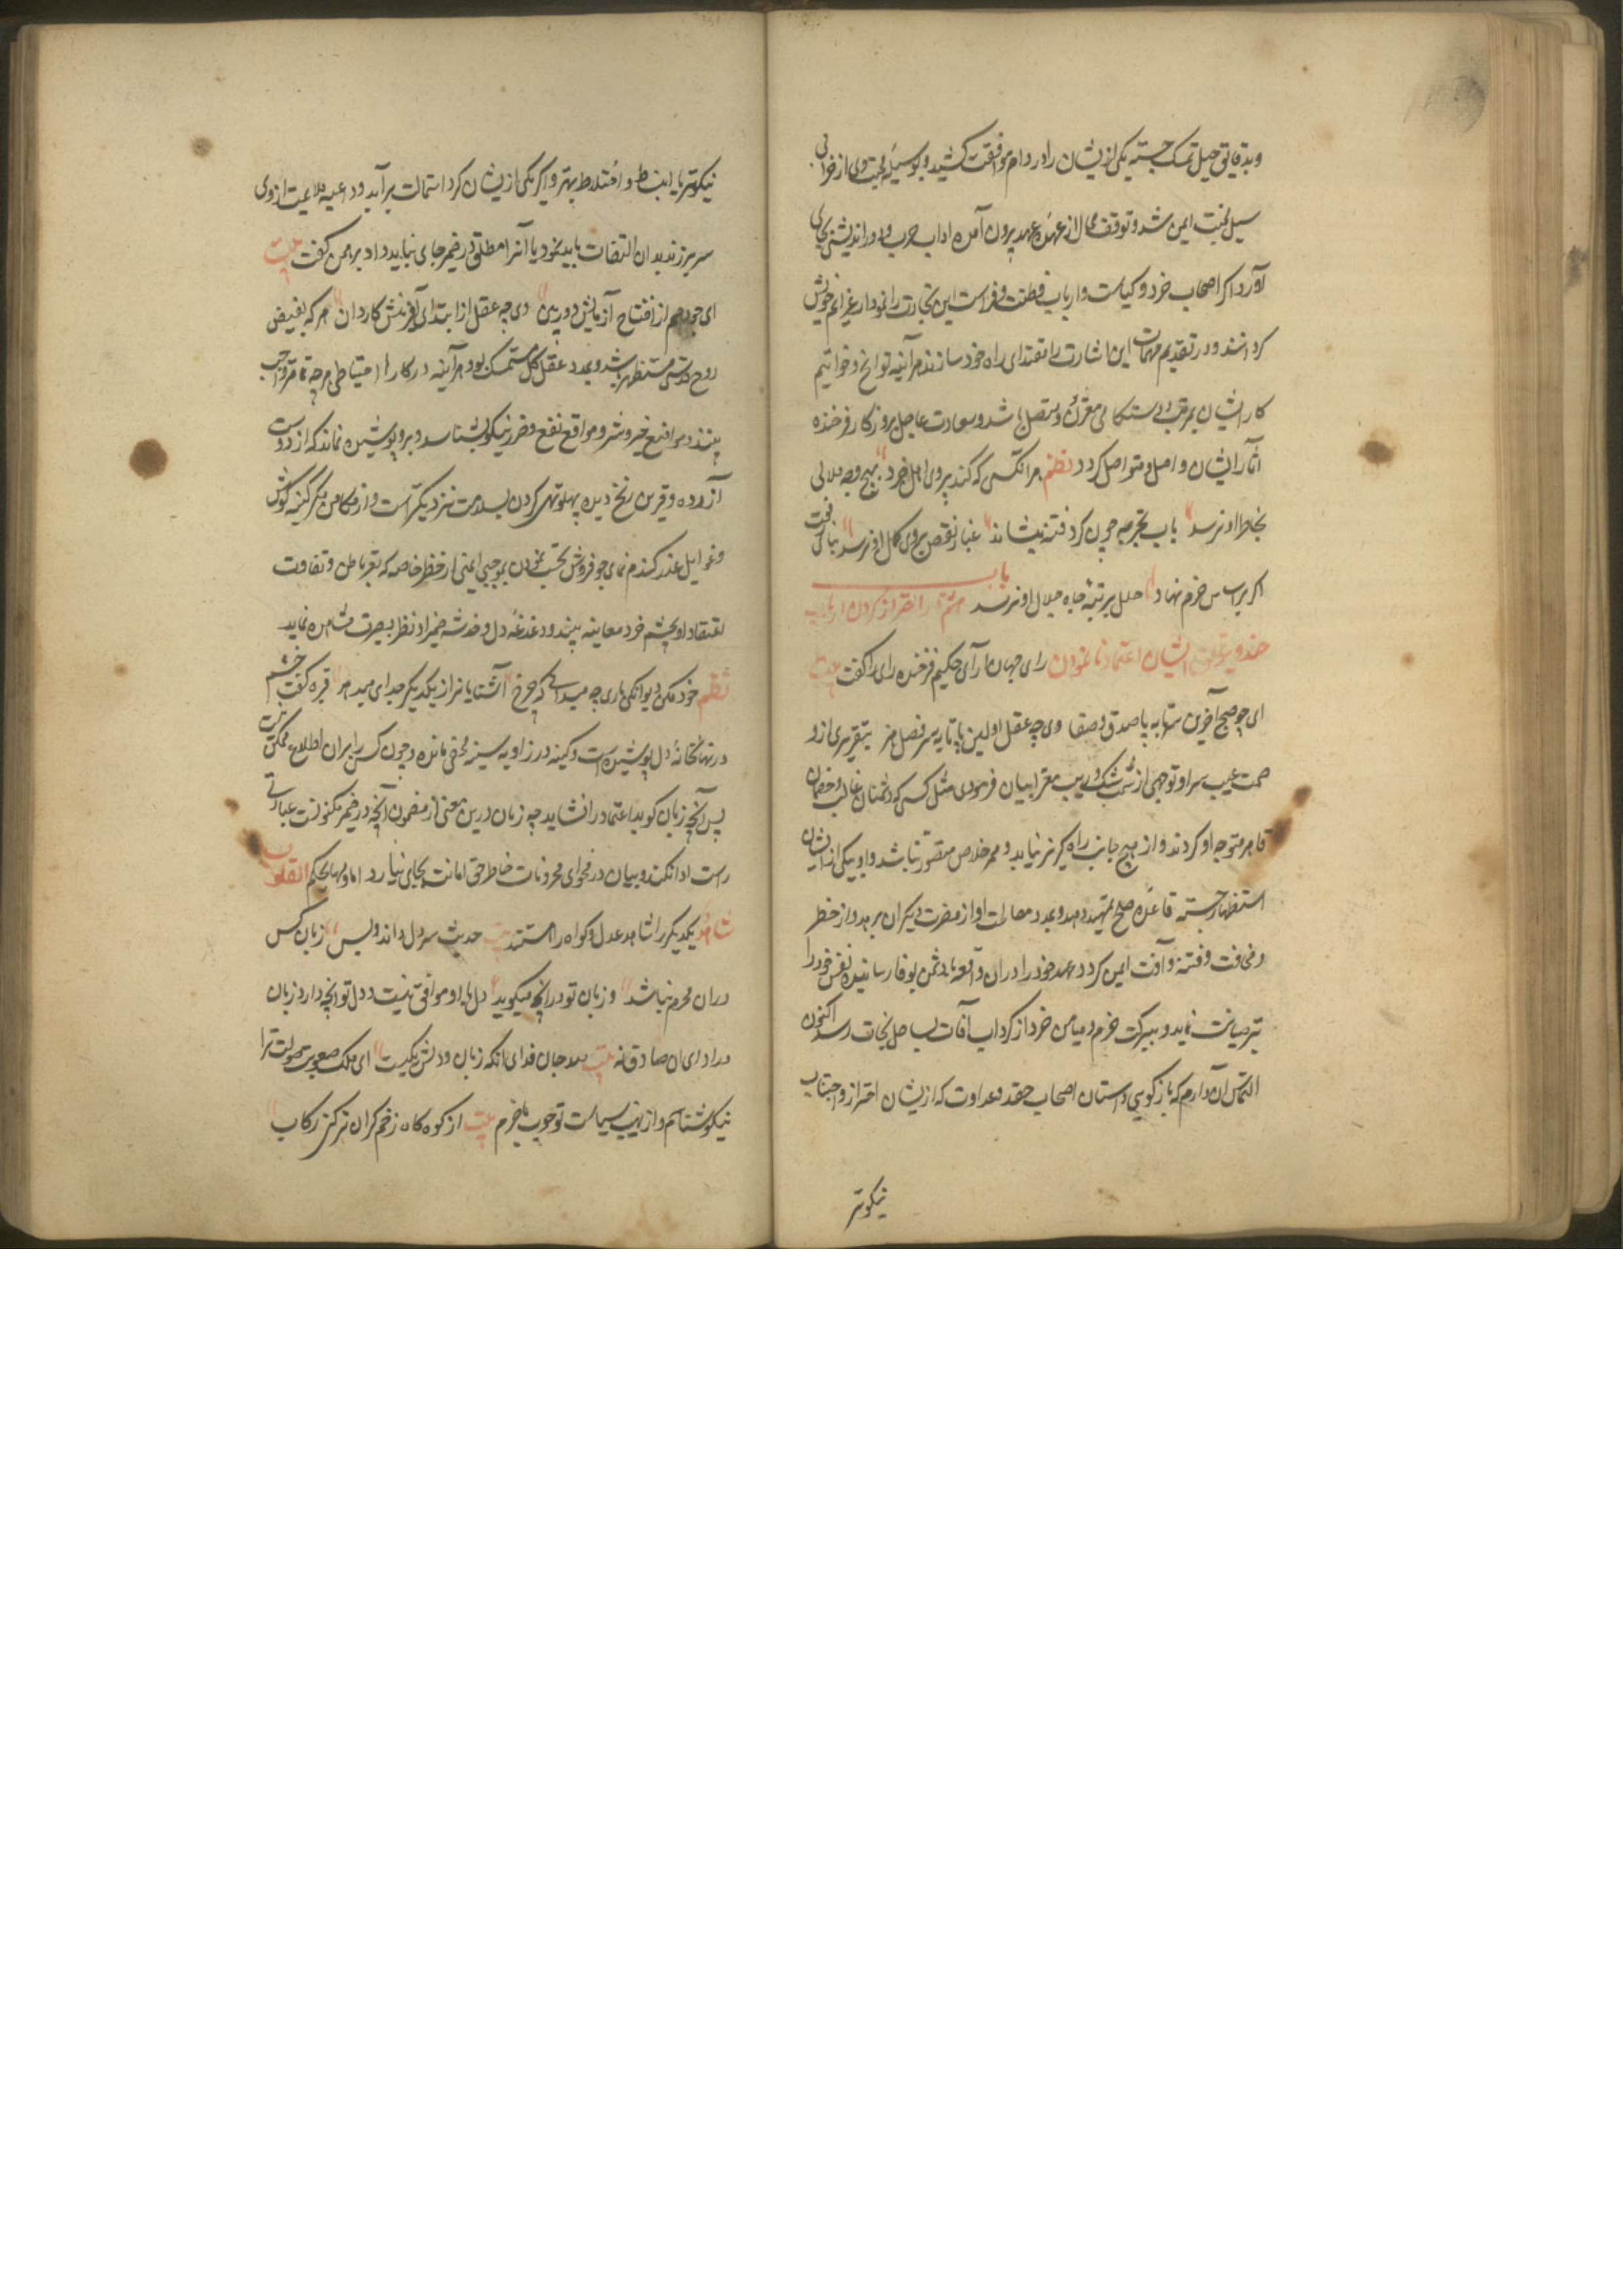 وبدقایق حیل تمسک جسته یکی ازیشان را در دام موافقت کشید و بوسیله محبت وی از خرابی
سیل محنت ایمن شد و توقف محال از عهده عهد بیرون آمده اداب حرب و دوراندیشی بجای
آورد اکر اصحاب خرد و کیاست وارباب فطنت و فراست این تجارت را نمودار عزایم خویش
کردانند و در تقدیم مهمات این اشارت را مقتدای راه خود سازند هر آینه فواتح و خواتیم
کار ایشان بمرتب دستکامی مقرون و متصل باشد و سعادت عاجل بروزکار فرخنده
آثار ایشان واصل و متواصل کردد نظم هر انکس که کند پیروی اهل خرد بهیچ وجه ملالی
بخاطر او نرسد بآب تجربه چون کرد فتنه بنشاند غبار نقص بروی کمال او نرسد بنای رفعت
اکر بر اساس حزم نهاد خلل برتبه جاه جلال او نرسد باب هشتم در احتراز کردن از ارباب
حقد و بر تملق ایشان اعتماد نا نمودن رای جهان آرای حکیم فرخنده رای را کفت بیت
ای چو صبح آخرین سر تا بپا صدق و صفا وی چو عقل اولین پا تا بسر فضل و هنر بتقریری از و
صمت عیب مبرا و توجیهی از شبه شک و ریب معرا بیان فرمودی مثل کسی که دشمنان غالب و خصمان
قاهر متوجه او کردند و از هیچ جانب راه کریز نیابد و ممر خلاص متصور نباشد و او بیکی از ایشان
استظهار جسته قاعده صلح تمهید دهد و بمدد مصالحت او از مضرت دیکران برهد و از خطر
و مخافت و فتنه و آفت ایمن کردد و عهد خود را در ان واقعه با دشمن بوفا رسانیده نفس خود را
نیز صیانت نماید و ببرکت حزم و میامن خرد از کرداب آفات بساحل نجات رسد اکنون
التماس آن دارم که باز کویی داستان اصحاب حقد و عداوت که ازیشان احتراز و اجتناب
نیکوتر
نیکوتر یا انبساط و اختلاط بهتر و اکر یکی ازیشان کرد استمالت برآید و داعیه ملایمت از وی
سر برزند بدان التفات باید نمود یا آنرا مطلق در ضمیر جای نباید داد برهمن کفت بیت
ای چو وهم از افتتاح آزمایش دوربین وی چو عقل از ابتدای آفرینش کاردان هر که بفیض
روح قدسی مستظهر باشد و بمدد عقل کل متمسک بود هر آینه در کارها احتیاطی هرچه تمامتر واجب
بیند و مواضع خیر و شر و مواقع نفع و ضرر نیکو بشناسد و برو پوشیده نماند که از دوست
آزرده و قرین رنج دیده پهلو تهی کردن بسلامت نزدیکتر است و از مکامن مکر کینه کوش
و غوایل غدر کندم نمای جو فروش تجنب نمودن بموجبی ایمنی از خطر خاصه که تغیر باطن و تفاوت
اعتقاد او بچشم خرد معاینه بیند و دغدغه دل و خدشه ضمیر او بنظر بصیرت مشاهده نماید
نظم خود مکن دیوانکی باری چه میدانی که چرخ آشنایانرا از یکدیکر جدای میدهد قره کفت خشم
در نهانخانه دل پوشیده است و کینه در زاویه سینه مخفی مانده و چون کس را بران اطلاع ممکن نیست
پس آنچه زبان کوید اعتماد را نشاید چه زبان درین معنی از مضمون آنچه در ضمیر مکنونست عبارتی
راست ادا نکند و بیان در فحوای مخزونات خاطر حق امانت بجای نیارد اما دلها بحکم القلوب
تشاهد یکدیکر را شاهد عدل و کواه راستند بیت حدیث سر دل دل داند و بس زبان کس
دران محرم نباشد و زبان تو در آنچه میکوید دل با او موافق نیست و دل تو انچه دارد زبان
در ادای آن صادق نه بیت صد جان فدای انکه زبان و دلش یکیست ای ملک صعوبت صولت ترا
نیکو شناسم و از نهیب سیاست تو خوب باخبرم بیت از کوه کاه زخم کران تر کنی رکاب